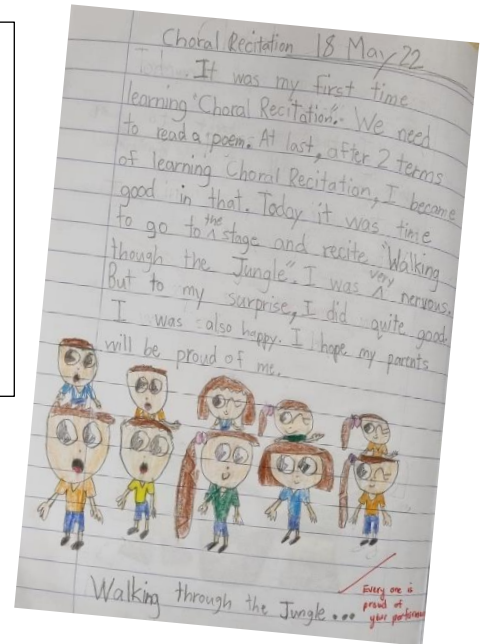 Choral Recitation 18 May 22
It was my first time
learning "Choral Recitation". We need
to read a poem. At last, after 2 terms
of learning Choral Recitation, I became
good in that. Today it was time
to go to the stage and recite "Walking
though the Jungle". I was very nervous.
But to my surprise, I did quite good.
I was also happy. I hope my parents
will be proud of me.
Walking through the Jungle...
Every one is
proud of
your performance